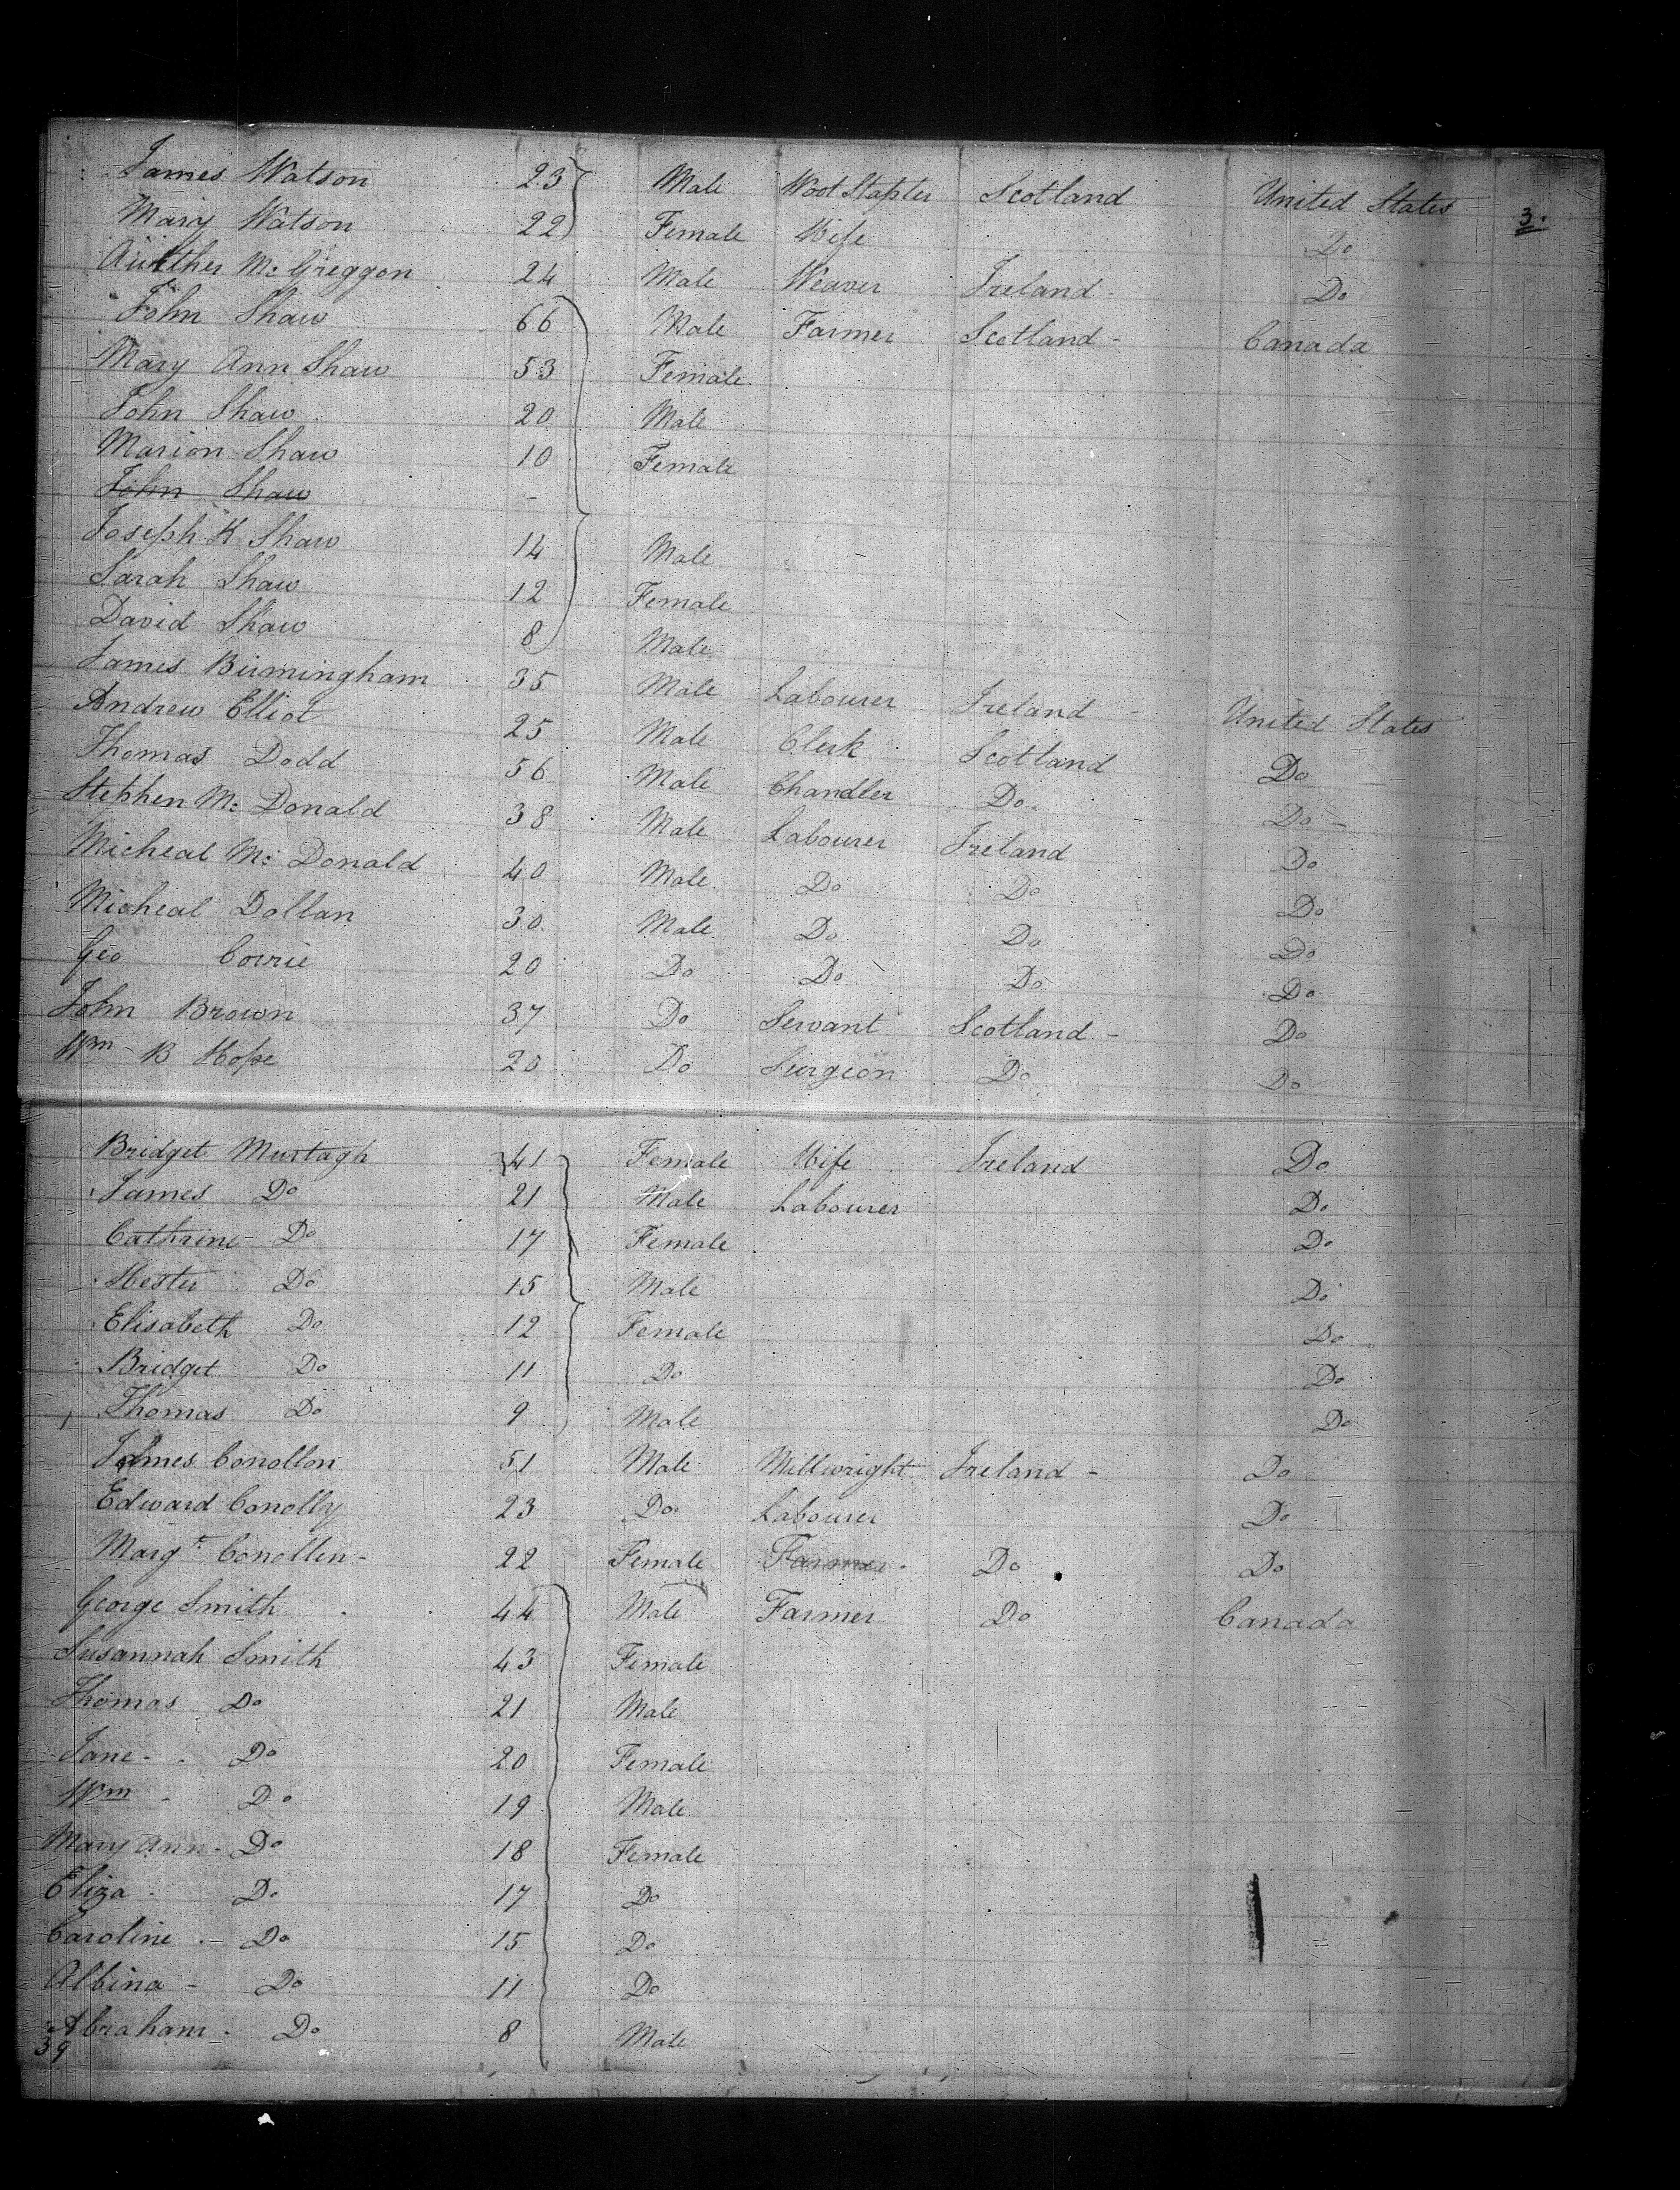 James Watson 23 Male Wool Stapler Scotland United States 3.
Mary Watson 22 Female Wife Do
Mc Greggon 24 Male Weaver Ireland - Do
John Shaw 66 Male Farmer Scotland - Canada
Mary Ann Shaw 53 Female
John Shaw 20 Male
Marion Shaw 10 Female
John Shaw -
Joseph K Shaw 14 Male
Sarah Shaw 12 Female
David Shaw 8 Male
James Birmingham 35 Male Labourer Ireland - United States
Andrew Elliot 25 Male Clerk Scotland Do
Thomas Dodd 56 Male Chandler Do. Do -
Stephen Mc Donald 38 Male Labourer Ireland Do
Micheal Mc Donald 40 Male Do Do Do
Micheal Dollan 30 Male Do Do Do
Geo Corrie 20 Do Do Do Do
John Brown 37 Do Servant Scotland - Do
Wm B Hope 20 Do Surgeon Do Do
Bridget Murtagh 41 Female Wife Ireland Do
James Do 21 Male Labourer Do
Cathrine - Do 17 Female Do
Do 15 Male Do
Elisabeth Do 12 Female Do
Bridget Do 11 Do Do
Thomas Do 9 Male Do
James Conollon 51 Male Millwright Ireland - Do
Edward Conolly 23 Do Labourer Do
Margt Conollen - 22 Female Farmer - Do Do
George Smith 44 Male Farmer Do Canada
Susannah Smith 43 Female
Thomas Do 21 Male
Jane - Do 20 Female
Wm - Do 19 Male
Mary Ann - Do 18 Female
Eliza Do 17 Do
Caroline - Do 15 Do
Albina - Do 11 Do
Abraham - Do 8 Male
39